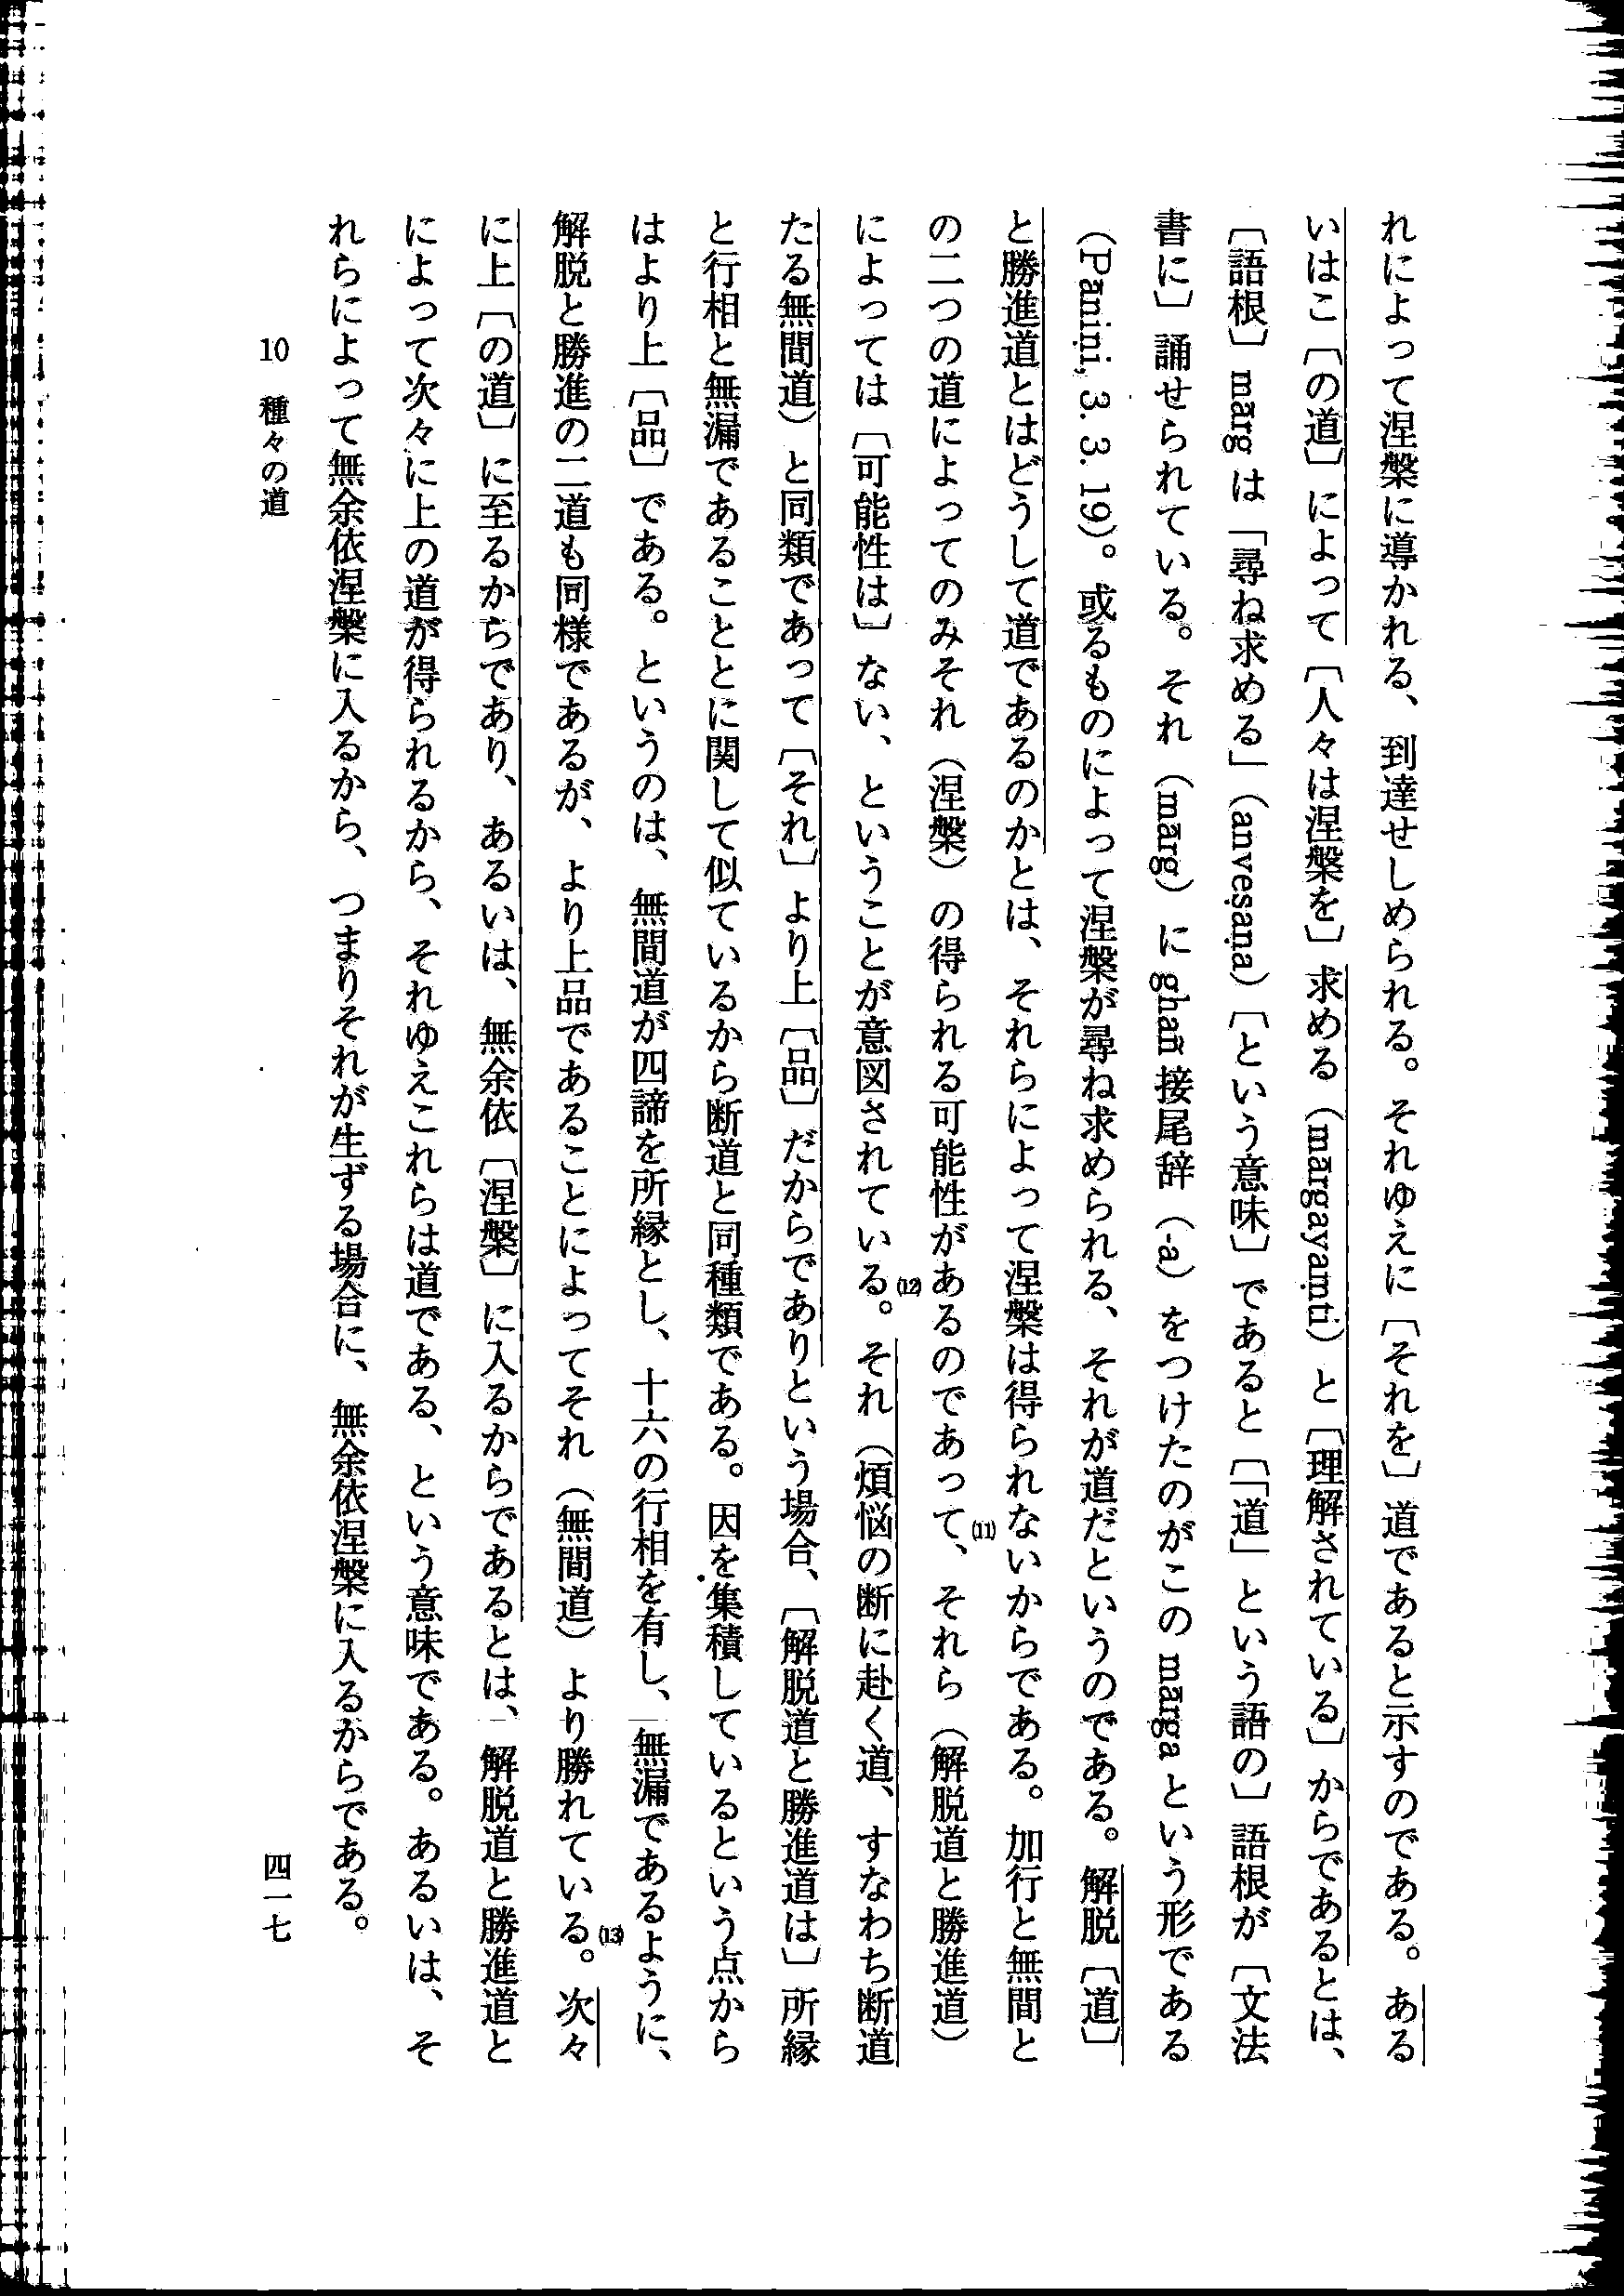 れによって涅槃に導かれる、到達せしめられる。それゆえに〔それを〕道であると示すのである。ある
いはこ〔の道〕によって〔人々は涅槃を〕求める（mārgayaṃti）と〔理解されている〕からであるとは、
〔語根〕mārg は「尋ね求める」（anveṣaṇa）〔という意味〕であると〔「道」という語の〕語根が〔文法
書に〕誦せられている。それ（mārg）に ghañ 接尾辞（-a）をつけたのがこの mārga という形である
（Pāṇini, 3. 3. 19）。或るものによって涅槃が尋ね求められる、それが道だというのである。解脱〔道〕
と勝進道とはどうして道であるのかとは、それらによって涅槃は得られないからである。加行と無間と
の二つの道によってのみそれ（涅槃）の得られる可能性があるのであって、それら（解脱道と勝進道）(11)
によっては〔可能性は〕ない、ということが意図されている。(12)それ（煩悩の断に赴く道、すなわち断道
たる無間道）と同類であって〔それ〕より上〔品〕だからでありという場合、〔解脱道と勝進道は〕所縁
と行相と無漏であることとに関して似ているから断道と同種類である。因を集積しているという点から
はより上〔品〕である。というのは、無間道が四諦を所縁とし、十六の行相を有し、無漏であるように、
解脱と勝進の二道も同様であるが、より上品であることによってそれ（無間道）より勝れている。(13)次々
に上〔の道〕に至るからであり、あるいは、無余依〔涅槃〕に入るからであるとは、解脱道と勝進道と
によって次々に上の道が得られるから、それゆえこれらは道である、という意味である。あるいは、そ
れらによって無余依涅槃に入るから、つまりそれが生ずる場合に、無余依涅槃に入るからである。
10 種々の道
四一七